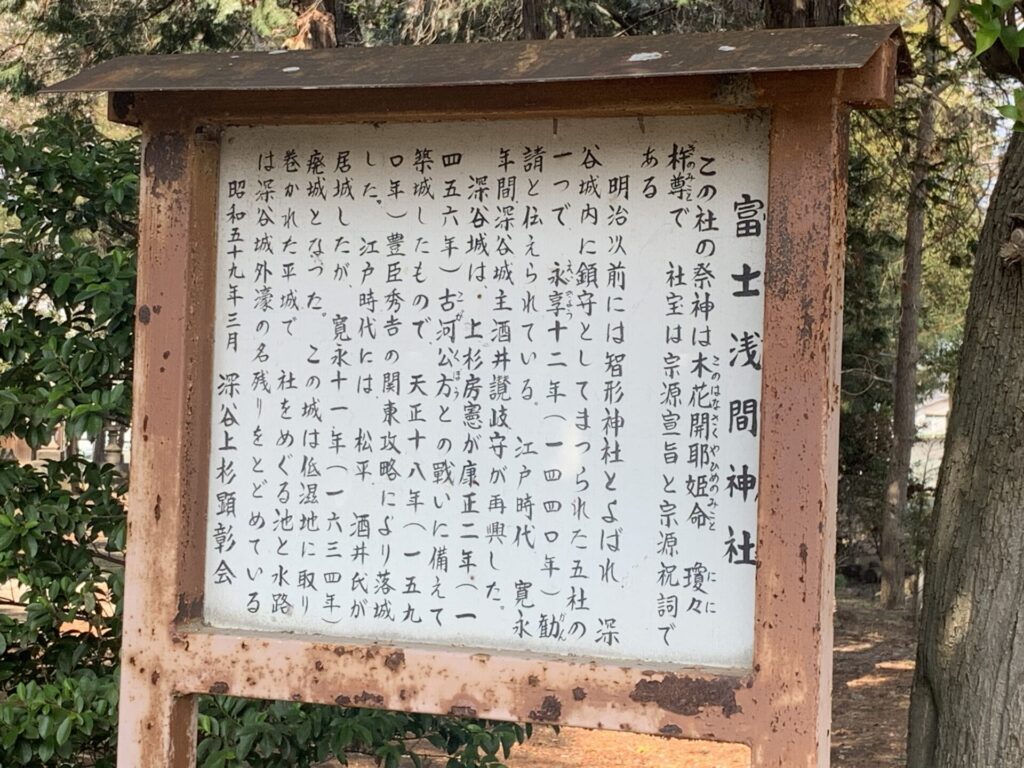 富士浅間神社
このはなさくやひめのみこと にに
この社の祭神は木花開耶姫命 瓊々
ぎのみこと
杵尊で 社宝は宗源宣旨と宗源祝詞で
ある
明治以前には智形神社とよばれ 深
谷城内に鎮守としてまつられた五社の
えいきょう かん
一つで 永享十二年(一四四〇年)勧
請と伝えられている。 江戸時代 寛永
年間深谷城主酒井讃岐守が再興した。
深谷城は、上杉房憲が康正二年(一
こがくぼう
四五六年)古河公方との戦いに備えて
築城したもので、天正十八年(一五九
〇年)豊臣秀吉の関東攻略により落城
した。 江戸時代には、松平、酒井氏が
居城したが、寛永十一年(一六三四年)
廃城となった。この城は低湿地に取り
巻かれた平城で 社をめぐる池と水路
は深谷城外濠の名残りをとどめている
昭和五十九年三月 深谷上杉顕彰会